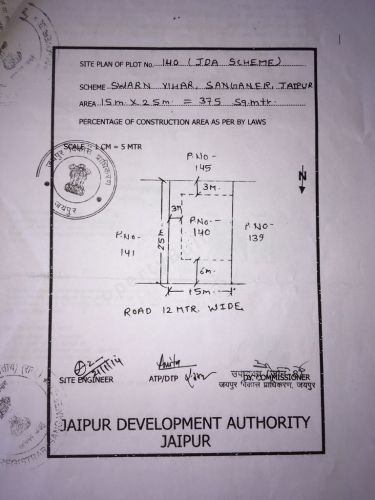 SITE PLAN OF PLOT No. 140 (JDA SCHEME)
SCHEME SWARN VIHAR, SANGANER, JAIPUR
AREA 15m X 25m. = 375 Sq.mtr.
PERCENTAGE OF CONSTRUCTION AREA AS PER BY LAWS
SCALE :- 1 CM = 5 MTR
जयपुर विकास प्राधिकरण
जयपुर
P.NO-
145
N
3M.
3M
P.NO-
140
25M
P.NO-
141
P.NO-
139
6m.
15m.
ROAD 12 MTR. WIDE
SITE ENGINEER
ATP/DTP
DY. COMMISSIONER
जयपुर विकास प्राधिकरण, जयपुर
JAIPUR DEVELOPMENT AUTHORITY
JAIPUR